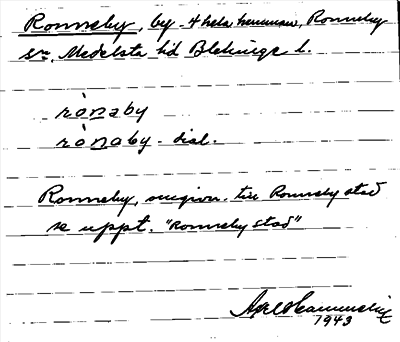 Ronneby, by - 4 hela hemman, Ronneby
sn, Medelsta hd Blekinge l.
rònaby
rònaby - dial.
Ronneby, omgivn. till Ronneby stad
se uppt. "Ronneby stad"
Axel
1943